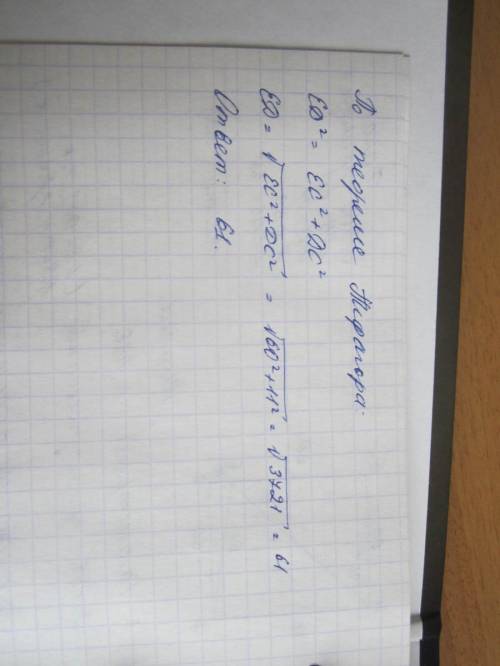 По теореме Пифагора:
ED² = EC² + DC²
ED = √EC² + DC² = √60² + 11² = √3721 = 61
Ответ: 61.